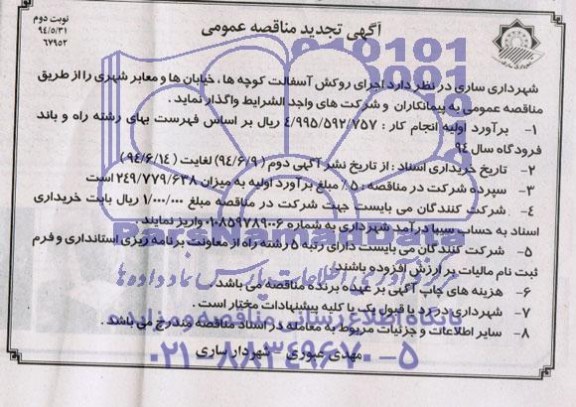 آگهی تجدید مناقصه عمومی
نوبت دوم
۹۴/۵/۳۱
۶۷۹۵۲
شهرداری ساری در نظر دارد اجرای روکش آسفالت کوچه ها ، خیابان ها و معابر شهری را از طریق
مناقصه عمومی به پیمانکاران و شرکت های واجد الشرایط واگذار نماید .
۱- برآورد اولیه انجام کار : ۴/۹۹۵/۵۹۲/۷۵۷ ریال بر اساس فهرست بهای رشته راه و باند
فرودگاه سال ۹۴
۲- تاریخ خریداری اسناد : از تاریخ نشر آگهی دوم (۹۴/۶/۹) لغایت (۹۴/۶/۱۴)
۳- سپرده شرکت در مناقصه : ۵٪ مبلغ برآورد اولیه به میزان ۲۴۹/۷۷۹/۶۳۸ است
۴- شرکت کنندگان می بایست جهت شرکت در مناقصه مبلغ ۱/۰۰۰/۰۰۰ ریال بابت خریداری
اسناد به حساب سیبا درآمد شهرداری به شماره ۰۱۰۸۵۹۷۸۹۰۰۶ واریز نمایند .
۵- شرکت کنندگان می بایست دارای رتبه ۵ رشته راه از معاونت برنامه ریزی استانداری و فرم
ثبت نام مالیات بر ارزش افزوده باشند
۶- هزینه های چاپ آگهی بر عهده برنده مناقصه می باشد .
۷- شهرداری در رد یا قبول یک یا کلیه پیشنهادات مختار است .
۸- سایر اطلاعات و جزئیات مربوط به معامله در اسناد مناقصه مندرج می باشد .
مهدی عبوری - شهردار ساری
ParsNamadData
فرآوری اطلاعات پارس نماد داده ها
پایگاه اطلاع رسانی مناقصه و مزایده
۰۲۱-۸۸۳۴۹۶۷۰-۵